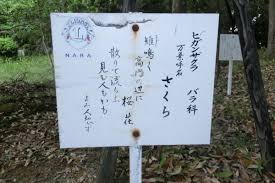 ヒガンザクラ　バラ科
さくら
雉鳴く
高円の辺に
桜花
散りて流らふ
見む人もがも
よみ人しらず
NARA